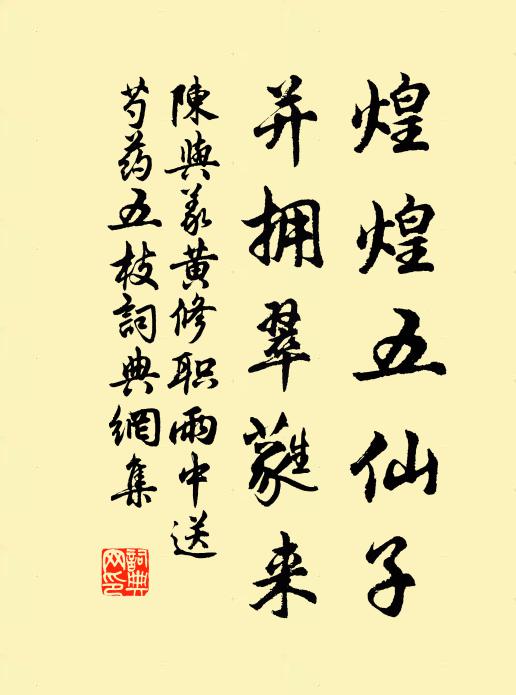 煌煌五仙子
并拥翠蕤来
陳與義黄修职雨中送
芍药五枝詞典網集
詞典
网印